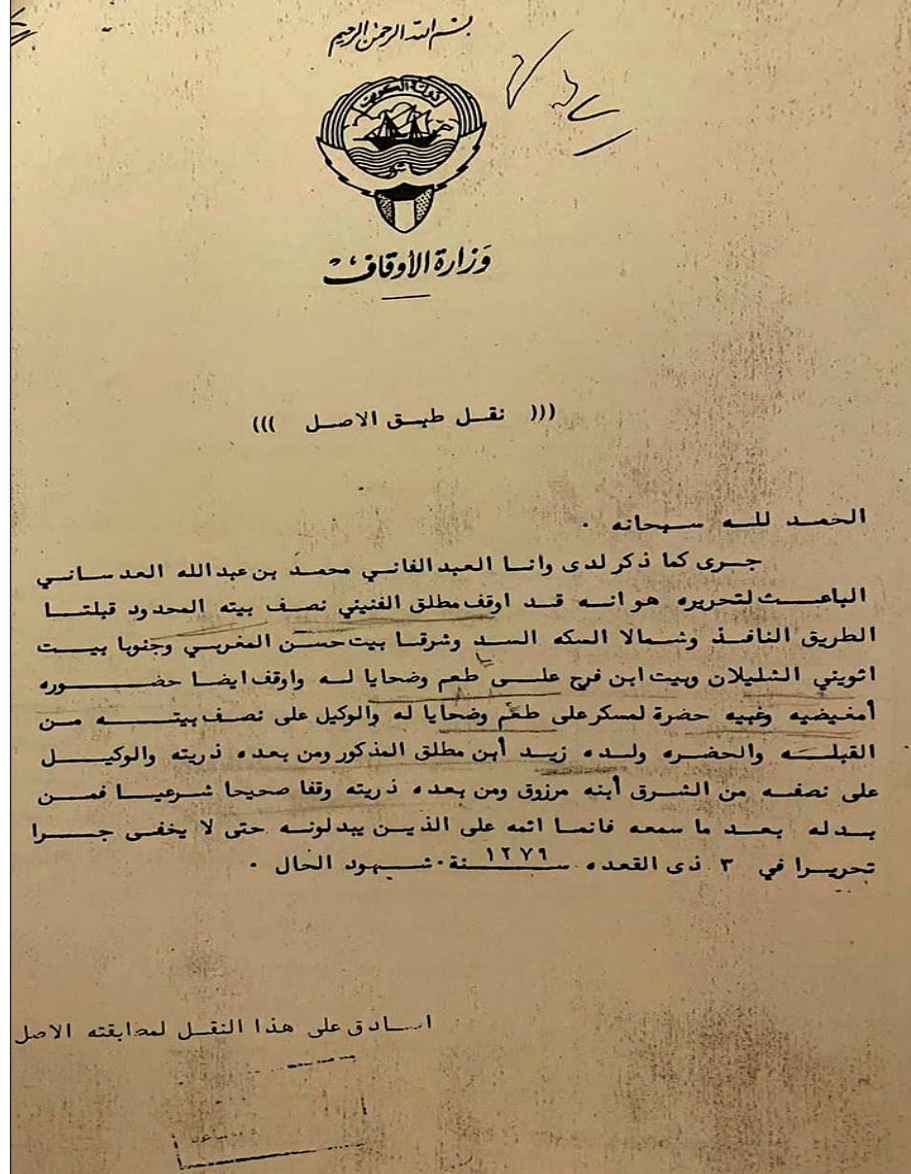 بسم الله الرحمن الرحيم
دولة الكويت
وزارة الأوقاف
((( نقل طبق الاصل )))
الحمد لله سبحانه .
جرى كما ذكر لدى وانا العبد الفاني محمد بن عبدالله العدساني
الباعث لتحريره هو انه قد اوقف مطلق الفنيني نصف بيته المحدود قبلتا
الطريق النافذ وشمالا السكه السد وشرقا بيت حسن المغربي وجنوبا بيت
اثويني الشليلان وبيت ابن فرج على طعم وضحايا له واوقف ايضا حضوره
أمغيضيه وغبيه حضرة لمسكر على طعم وضحايا له والوكيل على نصف بيته من
القبله والحضره ولده زيد أبن مطلق المذكور ومن بعده ذريته والوكيل
على نصفه من الشرق أبنه مرزوق ومن بعده ذريته وقفا صحيحا شرعيا فمن
بدله بعد ما سمعه فانما اثمه على الذين يبدلونه حتى لا يخفى جرا
تحريرا في ٣ ذى القعده سنة ١٢٧٩ . شهود الحال .
اصادق على هذا النقل لمطابقته الاصل